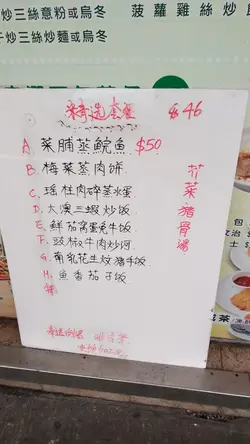 炒三絲意粉或烏冬
菠蘿雞絲炒
炒三絲炒麵或烏冬
精選套餐 $46
A 菜脯蒸鯇魚 $50
B. 梅菜蒸肉饼
C. 瑶柱肉碎蒸水蛋
D. 大澳三蝦炒饭
E. 鲜茄窝蛋免牛饭
F. 豉椒牛肉炒河
G. 南乳花生炆猪手饭
H. 魚香茄子饭
芥菜豬骨湯